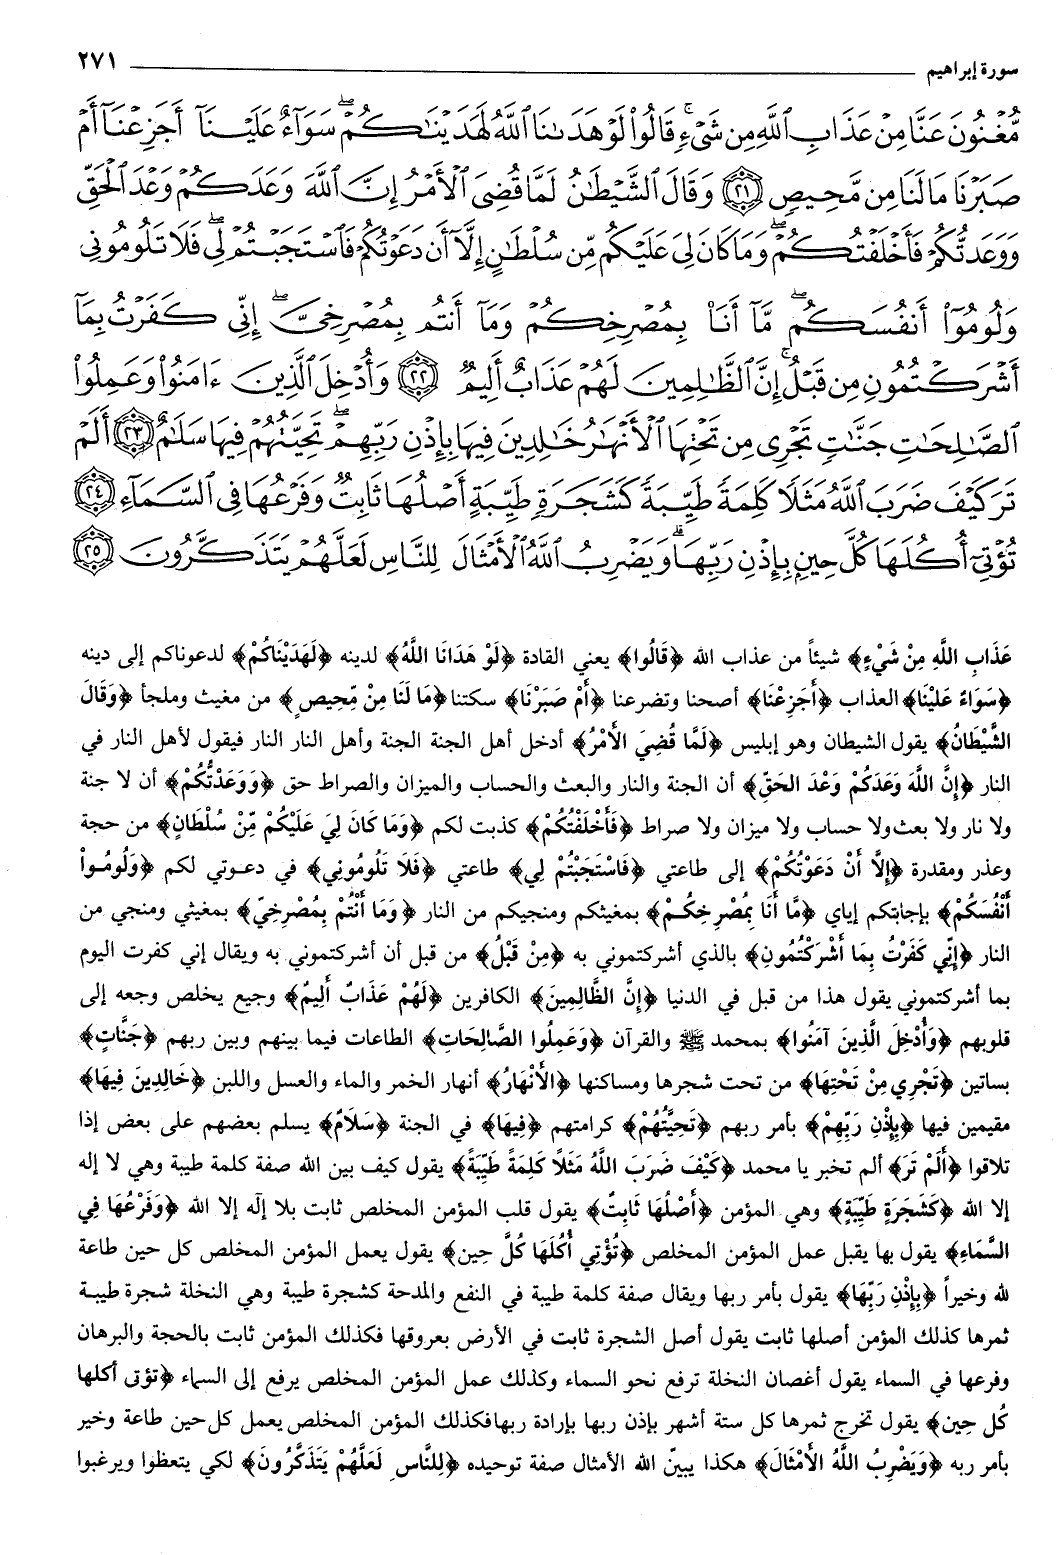 سورة إبراهيم ٢٧١
مُّغْنُونَ عَنَّا مِنْ عَذَابِ ٱللَّهِ مِن شَىْءٍۚ قَالُواْ لَوْ هَدَىٰنَا ٱللَّهُ لَهَدَيْنَٰكُمْۖ سَوَآءٌ عَلَيْنَآ أَجَزِعْنَآ أَمْ
صَبَرْنَا مَا لَنَا مِن مَّحِيصٍ ۝٢١ وَقَالَ ٱلشَّيْطَٰنُ لَمَّا قُضِىَ ٱلْأَمْرُ إِنَّ ٱللَّهَ وَعَدَكُمْ وَعْدَ ٱلْحَقِّ
وَوَعَدتُّكُمْ فَأَخْلَفْتُكُمْۖ وَمَا كَانَ لِىَ عَلَيْكُم مِّن سُلْطَٰنٍ إِلَّآ أَن دَعَوْتُكُمْ فَٱسْتَجَبْتُمْ لِىۖ فَلَا تَلُومُونِى
وَلُومُوٓاْ أَنفُسَكُمۖ مَّآ أَنَا۠ بِمُصْرِخِكُمْ وَمَآ أَنتُم بِمُصْرِخِىَّۖ إِنِّى كَفَرْتُ بِمَآ
أَشْرَكْتُمُونِ مِن قَبْلُۗ إِنَّ ٱلظَّٰلِمِينَ لَهُمْ عَذَابٌ أَلِيمٌ ۝٢٢ وَأُدْخِلَ ٱلَّذِينَ ءَامَنُواْ وَعَمِلُواْ
ٱلصَّٰلِحَٰتِ جَنَّٰتٍ تَجْرِى مِن تَحْتِهَا ٱلْأَنْهَٰرُ خَٰلِدِينَ فِيهَا بِإِذْنِ رَبِّهِمْۖ تَحِيَّتُهُمْ فِيهَا سَلَٰمٌ ۝٢٣ أَلَمْ
تَرَ كَيْفَ ضَرَبَ ٱللَّهُ مَثَلًا كَلِمَةً طَيِّبَةً كَشَجَرَةٍ طَيِّبَةٍ أَصْلُهَا ثَابِتٌ وَفَرْعُهَا فِى ٱلسَّمَآءِ ۝٢٤
تُؤْتِىٓ أُكُلَهَا كُلَّ حِينٍ بِإِذْنِ رَبِّهَاۗ وَيَضْرِبُ ٱللَّهُ ٱلْأَمْثَالَ لِلنَّاسِ لَعَلَّهُمْ يَتَذَكَّرُونَ ۝٢٥
عَذَابِ اللَّهِ مِنْ شَيْءٍ﴾ شيئاً من عذاب الله ﴿قَالُوا﴾ يعني القادة ﴿لَوْ هَدَانَا اللَّهُ﴾ لدينه ﴿لَهَدَيْنَاكُمْ﴾ لدعوناكم إلى دينه
﴿سَوَاءٌ عَلَيْنَا﴾ العذاب ﴿أَجَزِعْنَا﴾ أصحنا وتضرعنا ﴿أَمْ صَبَرْنَا﴾ سكتنا ﴿مَا لَنَا مِنْ مَّحِيصٍ﴾ من مغيث وملجأ ﴿وَقَالَ
الشَّيْطَانُ﴾ يقول الشيطان وهو إبليس ﴿لَمَّا قُضِيَ الأَمْرُ﴾ أدخل أهل الجنة الجنة وأهل النار النار فيقول لأهل النار في
النار ﴿إِنَّ اللَّهَ وَعَدَكُمْ وَعْدَ الحَقِّ﴾ أن الجنة والنار والبعث والحساب والميزان والصراط حق ﴿وَوَعَدْتُّكُمْ﴾ أن لا جنة
ولا نار ولا بعث ولا حساب ولا ميزان ولا صراط ﴿فَأَخْلَفْتُكُمْ﴾ كذبت لكم ﴿وَمَا كَانَ لِيَ عَلَيْكُمْ مِّنْ سُلْطَانٍ﴾ من حجة
وعذر ومقدرة ﴿إِلَّا أَنْ دَعَوْتُكُمْ﴾ إلى طاعتي ﴿فَاسْتَجَبْتُمْ لِي﴾ طاعتي ﴿فَلَا تَلُومُونِي﴾ في دعوتي لكم ﴿وَلُومُواْ
أَنْفُسَكُمْ﴾ بإجابتكم إياي ﴿مَّا أَنَا بِمُصْرِخِكُمْ﴾ بمغيثكم ومنجيكم من النار ﴿وَمَا أَنْتُمْ بِمُصْرِخِيَّ﴾ بمغيثي ومنجي من
النار ﴿إِنِّي كَفَرْتُ بِمَا أَشْرَكْتُمُونِ﴾ بالذي أشركتموني به ﴿مِنْ قَبْلُ﴾ من قبل أن أشركتموني به ويقال إني كفرت اليوم
بما أشركتموني يقول هذا من قبل في الدنيا ﴿إِنَّ الظَّالِمِينَ﴾ الكافرين ﴿لَهُمْ عَذَابٌ أَلِيمٌ﴾ وجيع يخلص وجعه إلى
قلوبهم ﴿وَأُدْخِلَ الَّذِينَ آمَنُوا﴾ بمحمد ﷺ والقرآن ﴿وَعَمِلُوا الصَّالِحَاتِ﴾ الطاعات فيما بينهم وبين ربهم ﴿جَنَّاتٍ﴾
بساتين ﴿تَجْرِي مِنْ تَحْتِهَا﴾ من تحت شجرها ومساكنها ﴿الأَنْهَارُ﴾ أنهار الخمر والماء والعسل واللبن ﴿خَالِدِينَ فِيهَا﴾
مقيمين فيها ﴿بِإِذْنِ رَبِّهِمْ﴾ بأمر ربهم ﴿تَحِيَّتُهُمْ﴾ كرامتهم ﴿فِيهَا﴾ في الجنة ﴿سَلَامٌ﴾ يسلم بعضهم على بعض إذا
تلاقوا ﴿أَلَمْ تَرَ﴾ ألم تخبر يا محمد ﴿كَيْفَ ضَرَبَ اللَّهُ مَثَلًا كَلِمَةً طَيِّبَةً﴾ يقول كيف بين الله صفة كلمة طيبة وهي لا إله
إلا الله ﴿كَشَجَرَةٍ طَيِّبَةٍ﴾ وهي المؤمن ﴿أَصْلُهَا ثَابِتٌ﴾ يقول قلب المؤمن المخلص ثابت بلا إلٓه إلا الله ﴿وَفَرْعُهَا فِي
السَّمَاءِ﴾ يقول بها يقبل عمل المؤمن المخلص ﴿تُؤْتِي أُكُلَهَا كُلَّ حِينٍ﴾ يقول يعمل المؤمن المخلص كل حين طاعة
لله وخيراً ﴿بِإِذْنِ رَبِّهَا﴾ يقول بأمر ربها ويقال صفة كلمة طيبة في النفع والمدحة كشجرة طيبة وهي النخلة شجرة طيبة
ثمرها كذلك المؤمن أصلها ثابت يقول أصل الشجرة ثابت في الأرض بعروقها فكذلك المؤمن ثابت بالحجة والبرهان
وفرعها في السماء يقول أغصان النخلة ترفع نحو السماء وكذلك عمل المؤمن المخلص يرفع إلى السماء ﴿تؤتى أكلها
كُل حِين﴾ يقول تخرج ثمرها كل ستة أشهر بإذن ربها بإرادة ربها فكذلك المؤمن المخلص يعمل كل حين طاعة وخير
بأمر ربه ﴿وَيَضْرِبُ اللَّهُ الأَمْثَالَ﴾ هكذا يبيّن الله الأمثال صفة توحيده ﴿لِلنَّاسِ لَعَلَّهُمْ يَتَذَكَّرُونَ﴾ لكي يتعظوا ويرغبوا